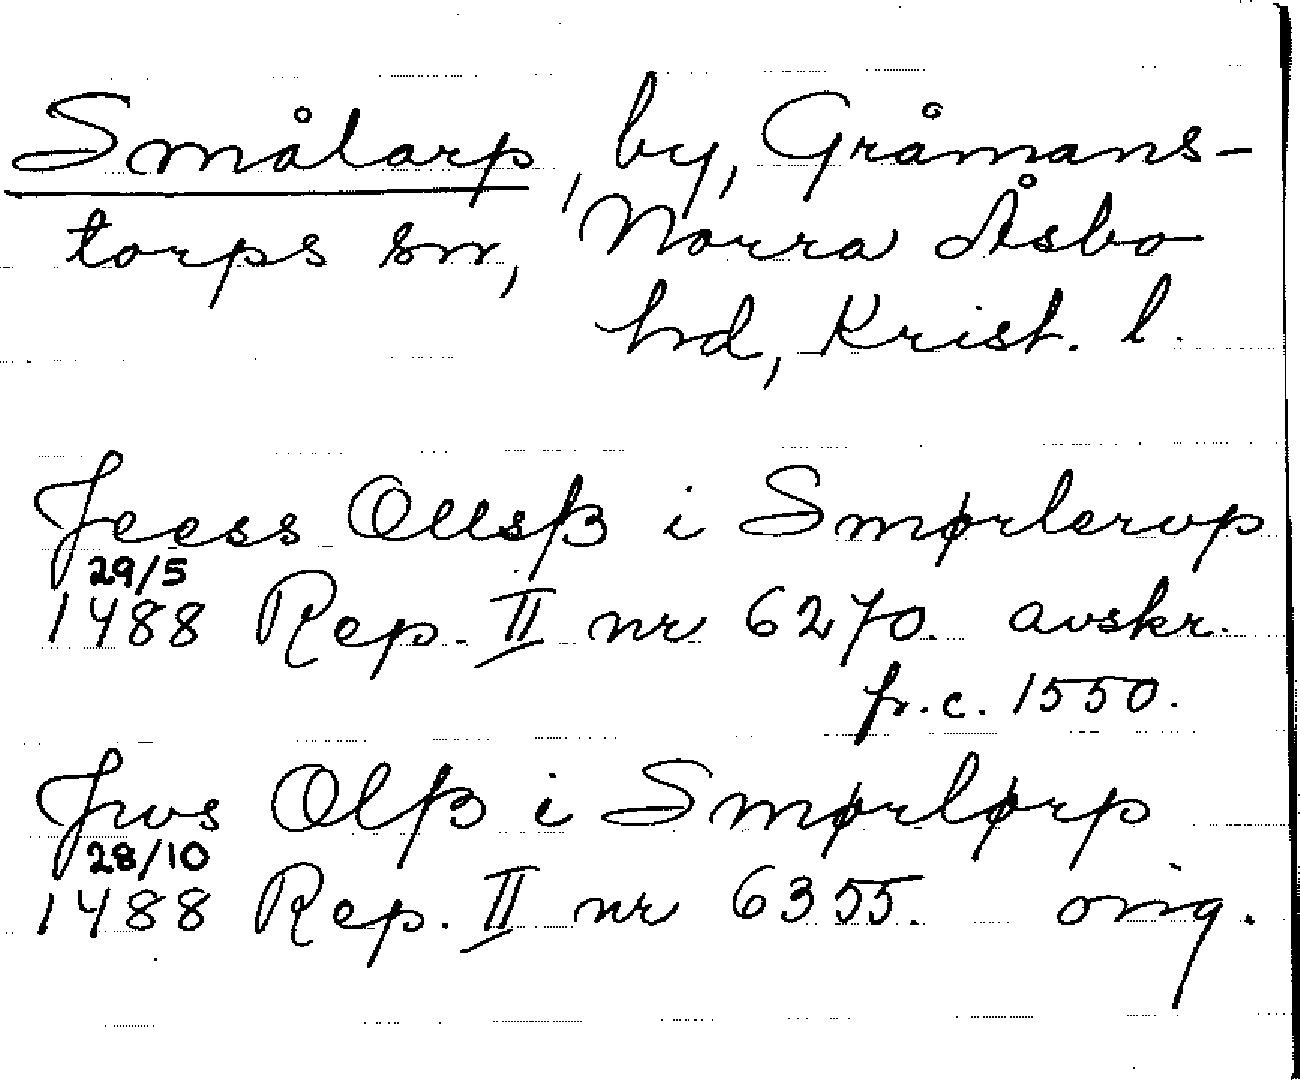 Smålarp, by, Gråmans-
torps sn, Norra Åsbo
hd, Krist. l.
Jeess Ollsß i Smørlerop
29/5
1488 Rep. II nr 6270. avskr.
fr. c. 1550.
Jws Olß i Smørlørp
28/10
1488 Rep. II nr 6355. orig.